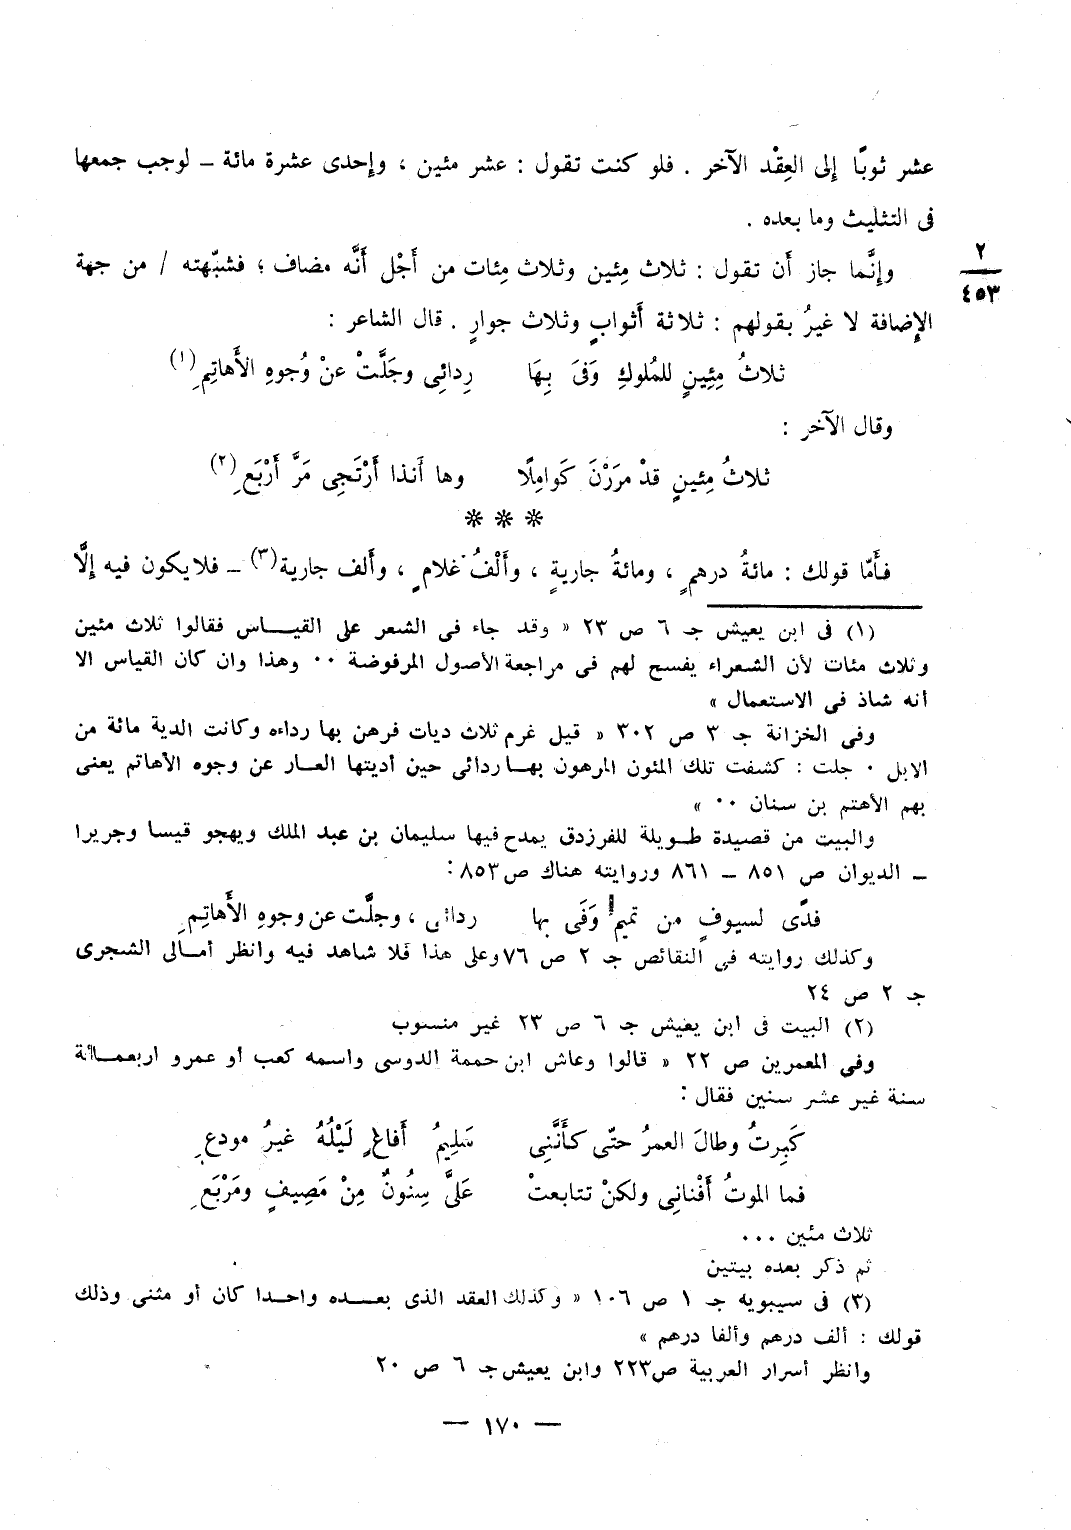 عشر ثوبًا إلى العِقْد الآخر . فلو كنت تقول : عشر مئين ، وإحدى عشرة مائة – لوجب جمعها
فى التثليث وما بعده .
٢
٤٥٣
وإنَّما جاز أَن تقول : ثلاث مِئين وثلاث مِئات من أَجْل أَنَّه مضاف ؛ فشبّهته / من جهة
الإِضافة لا غيرُ بقولهم : ثلاثة أَثوابٍ وثلاث جوارٍ . قال الشاعر :
ثلاثُ مِئِينٍ للمُلوكِ وَفَى بِهَا رِدائِى وجَلَّتْ عنْ وُجوهِ الأَهاتِمِ (١)
وقال الآخر :
ثلاثُ مِئينٍ قدْ مرَرْنَ كَوامِلًا وها أَنذا أَرْتَجِى مَرَّ أَرْبَعِ (٢)
❊ ❊ ❊
فأَمّا قولك : مائةُ درهمٍ ، ومائةُ جاريةٍ ، وأَلْفُ غلامٍ ، وأَلف جارية(٣) – فلا يكون فيه إلَّا
(١) فى ابن يعيش جـ ٦ ص ٢٣ « وقد جاء فى الشعر على القيـاس فقالوا ثلاث مئين
وثلاث مئات لأن الشعراء يفسح لهم فى مراجعة الأصول المرفوضة ٠٠ وهذا وان كان القياس الا
أنه شاذ فى الاستعمال »
وفى الخزانة جـ ٣ ص ٣٠٢ « قيل غرم ثلاث ديات فرهن بها رداءه وكانت الدية مائة من
الابل ٠ جلت : كشفت تلك المئون المرهون بهـا ردائى حين أديتها العـار عن وجوه الأهاتم يعنى
بهم الأهتم بن سنان ٠٠ »
والبيت من قصيدة طـويلة للفرزدق يمدح فيها سليمان بن عبد الملك ويهجو قيسا وجريرا
– الديوان ص ٨٥١ – ٨٦١ وروايته هناك ص ٨٥٣ :
فدًى لسيوفٍ من تميمٍ وَفَى بها ردائى ، وجلَّت عن وجوهِ الأَهاتمِ
وكذلك روايته فى النقائص جـ ٢ ص ٧٦ وعلى هذا فلا شاهد فيه وانظر أمـالى الشجرى
جـ ٢ ص ٢٤
(٢) البيت فى ابن يعيش جـ ٦ ص ٢٣ غير منسوب
وفى المعمرين ص ٢٢ « قالوا وعاش ابن حممة الدوسى واسمه كعب أو عمرو اربعمـائة
سنة غير عشر سنين فقال :
كَبِرتُ وطالَ العمرُ حتّى كأَنَّنِى سَلِيمُ أَفاعٍ لَيْلُهُ غيرُ مودعِ
فما الموتُ أَفْنانِى ولكنْ تتابعتْ عَلَىَّ سِنُونٌ مِنْ مَصِيفٍ ومَرْبَعِ
ثلاث مئين ...
ثم ذكر بعده بيتين
(٣) فى سيبويه جـ ١ ص ١٠٦ « وكذلك العقد الذى بعـده واحدا كان أو مثنى وذلك
قولك : ألف درهم وألفا درهم »
وانظر أسرار العربية ص ٢٢٣ وابن يعيش جـ ٦ ص ٢٠
— ١٧٠ —